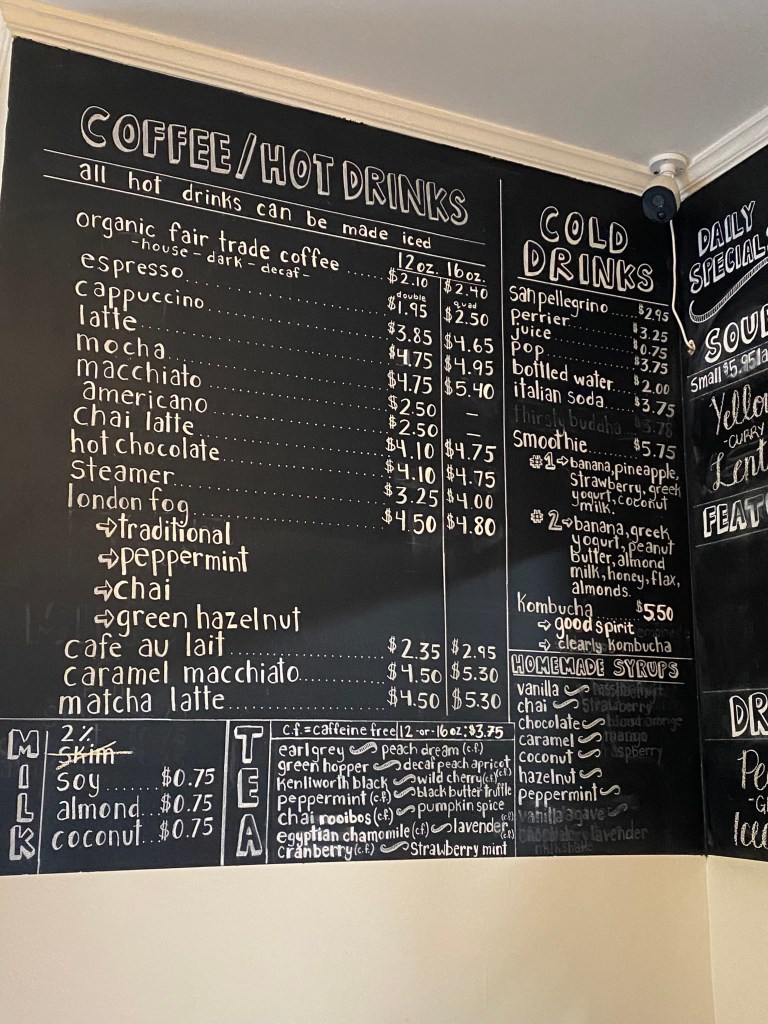 COFFEE/HOT DRINKS
all hot drinks can be made iced
12oz. 16oz.
organic fair trade coffee ..... $2.10 $2.40
-house-dark-decaf-
double quad
espresso ..... $1.95 $2.50
cappuccino ..... $3.85 $4.65
latte ..... $4.75 $4.95
mocha ..... $4.75 $5.40
macchiato ..... $2.50 –
americano ..... $2.50 –
chai latte ..... $4.10 $4.75
hot chocolate ..... $4.10 $4.75
steamer ..... $3.25 $4.00
london fog ..... $4.50 $4.80
⇨traditional
⇨peppermint
⇨chai
⇨green hazelnut
cafe au lait ..... $2.35 $2.95
caramel macchiato ..... $4.50 $5.30
matcha latte ..... $4.50 $5.30
MILK
2%
Skim
soy ..... $0.75
almond ... $0.75
coconut .. $0.75
TEA
c.f.=caffeine free 12-or-16oz:$3.75
earl grey ~ peach dream (c.f.)
green hopper ~ decaf peach apricot (c.f.)
kenliworth black ~ wild cherry (c.f.)
peppermint (c.f.) ~ black butter truffle
chai rooibos (c.f.) ~ pumpkin spice
egyptian chamomile (c.f.) ~ lavender (c.f.)
cranberry (c.f.) ~ Strawberry mint
COLD
DRINKS
san pellegrino ... $2.95
perrier ..... $3.25
juice ..... $0.75
pop ..... $3.75
bottled water .. $2.00
italian soda .. $3.75
thirsty buddha $3.78
Smoothie ..... $5.75
#1⇨banana, pineapple,
Strawberry, greek
yogurt, coconut
milk.
#2⇨banana, greek
yogurt, peanut
butter, almond
milk, honey, flax,
almonds.
Kombucha ..... $5.50
⇨good spirit
⇨clearly kombucha
HOMEMADE SYRUPS
vanilla ~ passionfruit
chai ~ Strawberry
chocolate ~ blood orange
caramel ~ mango
coconut ~
hazelnut ~
peppermint ~
vanilla agave ~
lavender
DAILY
SPECIAL
SOU
Small $5.95
Yello
-CURRY
Lent
FEAT
DR
Pe
Ice